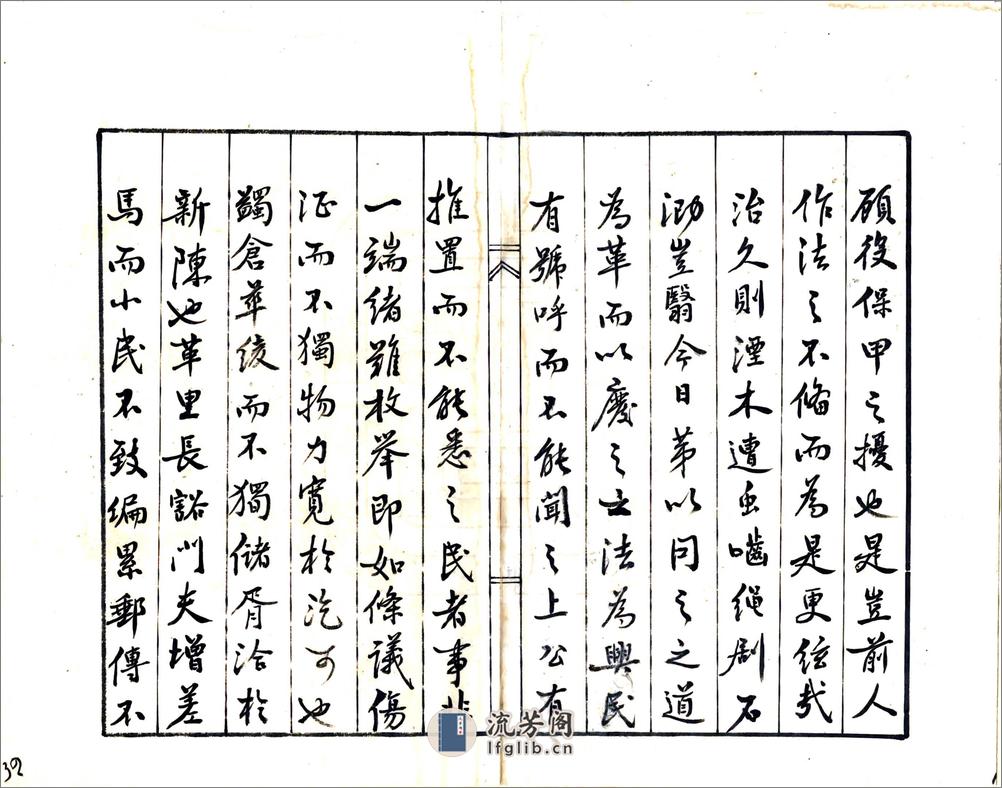 顧役保甲之擾也是豈前人
作法之不脩而為是更絃哉
治久則湮木遭虫嚙繩剧石
泐豈翳今日苐以问之之道
為革而以廢之士法為興民
有號呼而不能聞之上公有
推置而不能悉之民者事非
一端绪難枚举即如條議傷
征而不獨物力寬於汔可也
蠲倉萃绫而不獨儲胥洽於
新陳也革里長豁门夫增差
馬而小民不致编累郵傳不
流芳阁
lfglib.cn
39